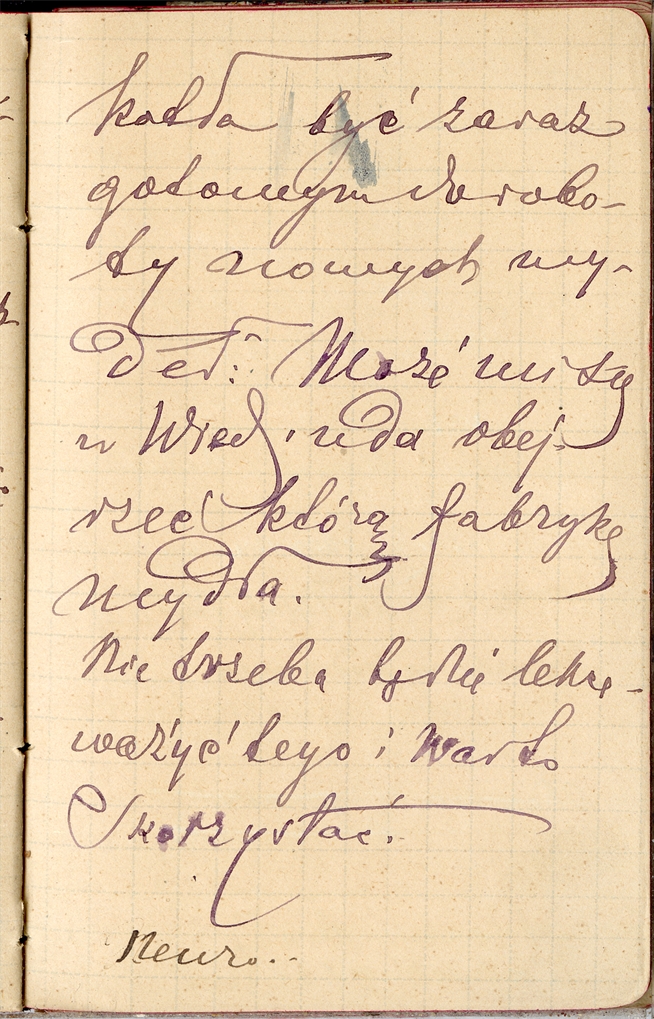 kotła być zaraz
gotowym do robo-
ty nowych my-
deł. Może mi się
w Wied, uda obej-
rzeć którą fabrykę
mydła.
Nie trzeba będzie lekce-
ważyć tego i warto
skorzystać.